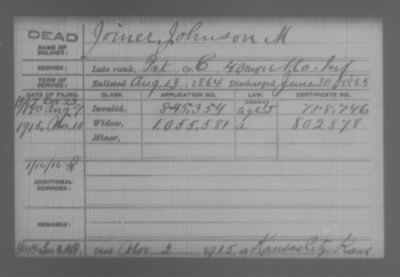 DEAD
NAME OF SOLDIER: Joiner, Johnson M
SERVICE: Late rank, Pvt Co. C, 43 Reg't Mo. Inf
TERM OF SERVICE: Enlisted Aug 13, 1864 Discharged June 30, 1865
DATE OF FILING. CLASS. APPLICATION NO. LAW. CERTIFICATE NO.
1890 Aug 7 Invalid, 845,354 aged 788,746
1915, Nov. 10 Widow, 1,055,581 802878
Minor,
1/14/16-R
ADDITIONAL SERVICES:
REMARKS:
Died Nov 2, 1915, at Kansas City Kans